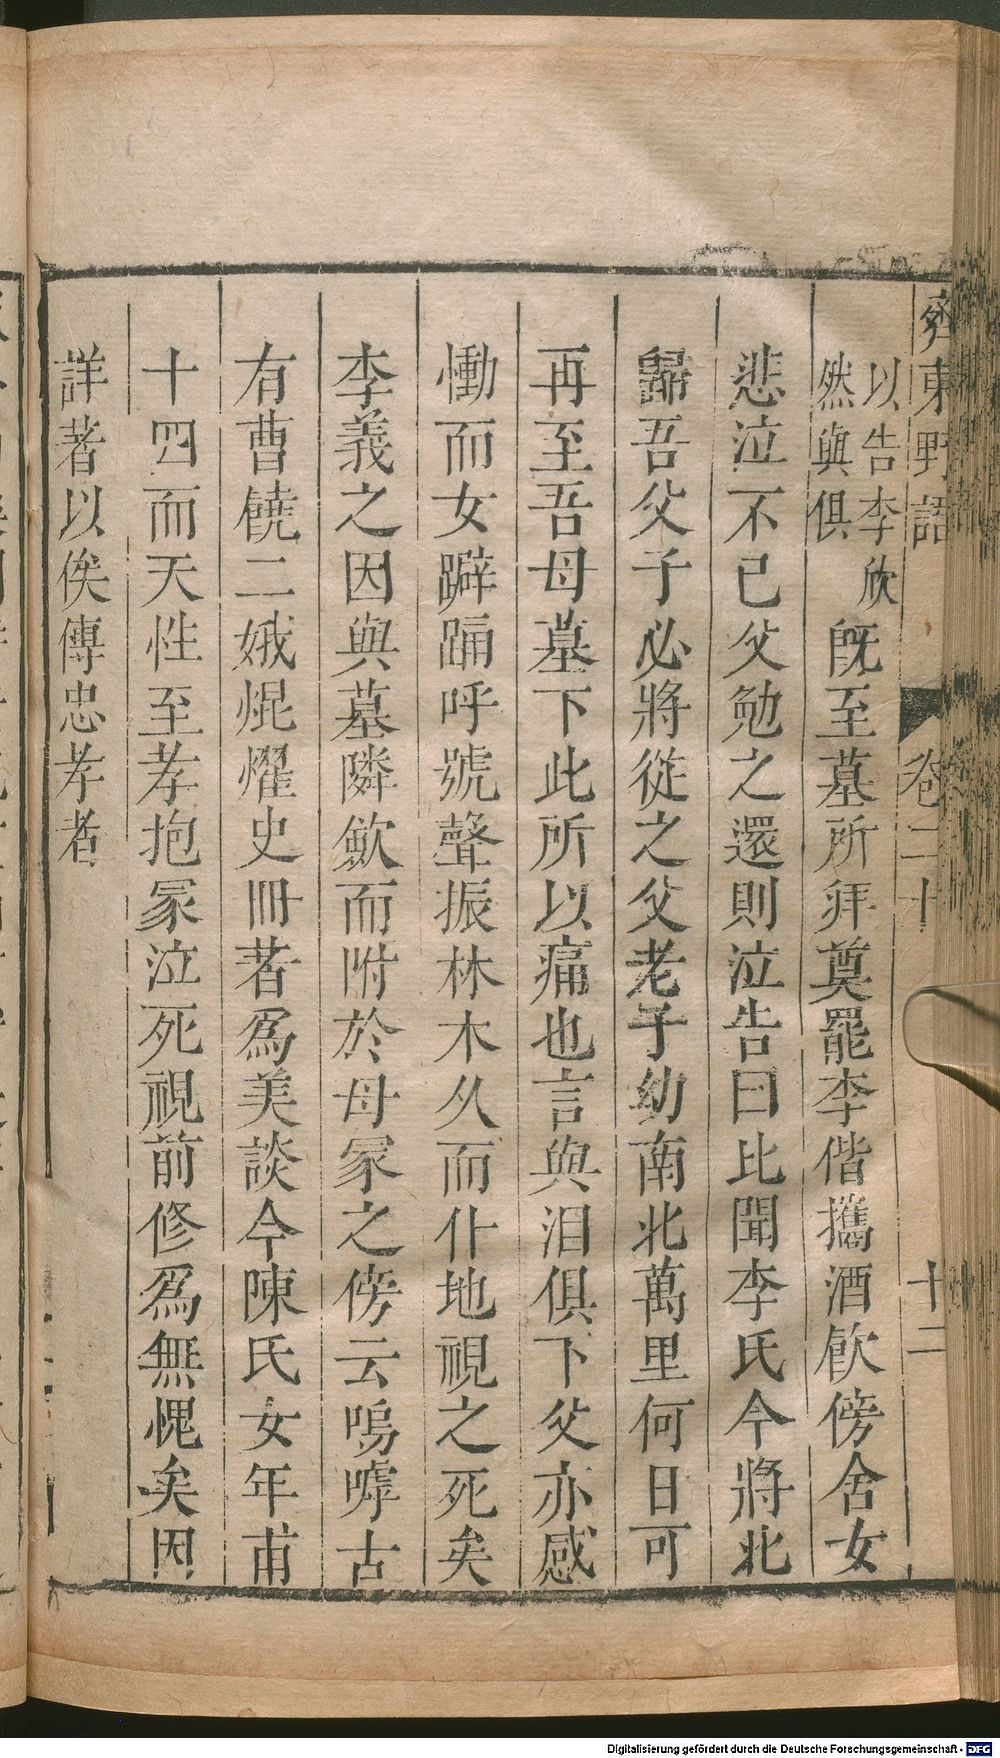 齊東野語 卷二十 十二
以告李欣
然與俱
旣至墓所拜奠罷李偕攜酒飲傍舍女
悲泣不已父勉之還則泣告曰比聞李氏今將北
歸吾父子必將從之父老子幼南北萬里何日可
再至吾母墓下此所以痛也言與泪俱下父亦感
慟而女躃踊呼號聲振林木久而仆地視之死矣
李義之因與墓隣歛而附於母冢之傍云嗚嘑古
有曹饒二娥焜燿史冊著爲美談今陳氏女年甫
十四而天性至孝抱冢泣死視前修爲無愧矣因
詳著以俟傳忠孝者
Digitalisierung gefördert durch die Deutsche Forschungsgemeinschaft - DFG